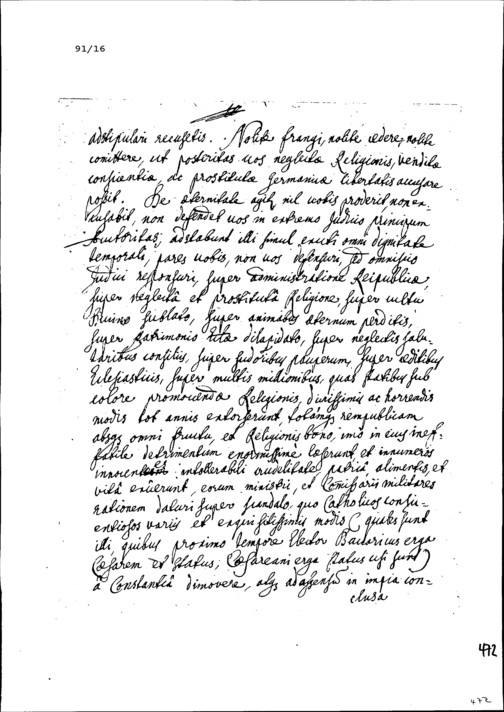 91/16
adstipulari recusetis. Nolite frangi, nolite cedere, nolite
comittere, ut posteritas vos neglectæ Religionis, venditæ
conscientiæ, de prostituta Germaniæ libertatis accusare
possit. De æternitate agitur, nil vobis proderit non ex=
cusabit, non defendet vos in extremo Judicio principum
Autoritas; adstabunt illi simul, exuti omni dignitate
temporali, pares vobis, non vos defensuri, sed omniscio
Judici responsuri, super administratione Reipublicæ,
super neglectâ et prostitutâ Religione super cultu
Divino sublato, super animabus æternum perditis,
super patrimonio dilapidato, super neglectis salu=
taribus consiliis, super sudoribus pauperum, super reditibus
Ecclesiasticis, super multis millionibus, quas statibus sub
colore promovendæ Religionis, durissimis ac horrendis
modis tot annis extorserunt, totamque rempublicam
absque omni fructu, et Religionis bono, imò in eius inef=
fabile detrimentum enormissime læserunt et innumeros
innocentes intollerabili crudelitate, patriâ, alimentis, et
vitâ exuerunt, eorum ministri, et Comissariis militares
rationem daturi super scandalo, quo Catholicos consci=
entiosos variis et exquisitissimis modis (quales sunt
illi, quibus proximo tempore Elector Bavaricus erga
Cæsarem et status, Cæsareani erga status usi sunt)
â Constantiâ dimovere, atque ad assensum in impia con=
clusa
472
472